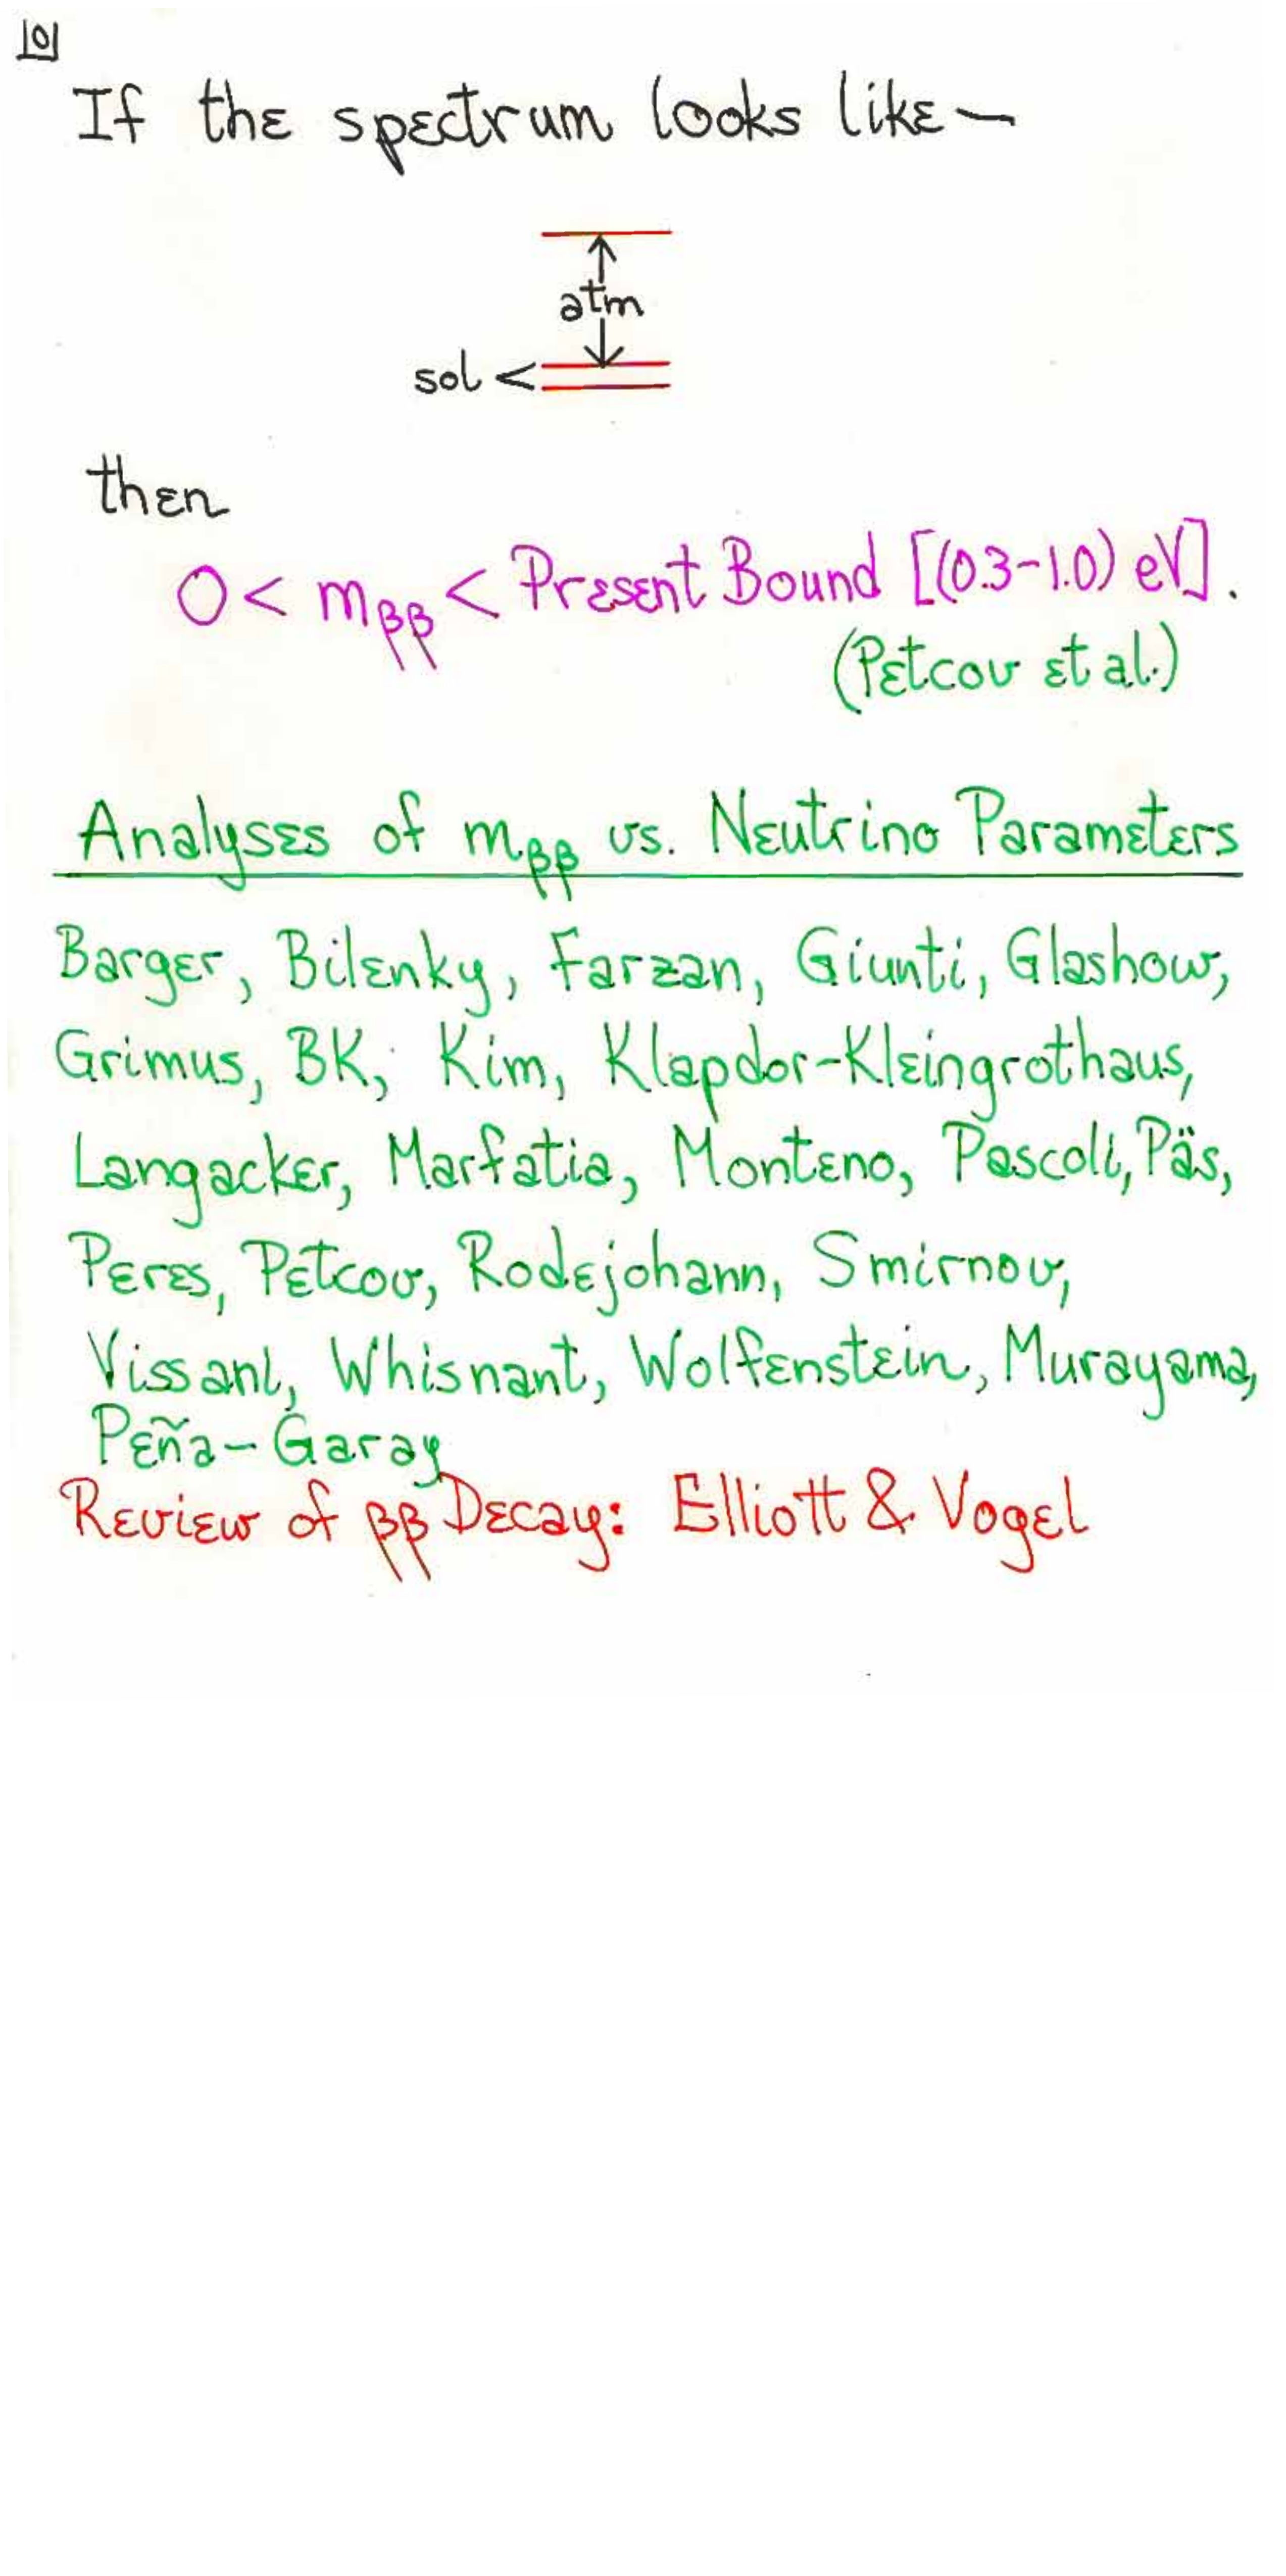 10
If the spectrum looks like—
atm
sol <
then
0 < mββ < Present Bound [(0.3–1.0) eV].
(Petcov et al.)
Analyses of mββ vs. Neutrino Parameters
Barger, Bilenky, Farzan, Giunti, Glashow,
Grimus, BK, Kim, Klapdor-Kleingrothaus,
Langacker, Marfatia, Monteno, Pascoli, Päs,
Peres, Petcov, Rodejohann, Smirnov,
Vissani, Whisnant, Wolfenstein, Murayama,
Peña-Garay
Review of ββ Decay: Elliott & Vogel